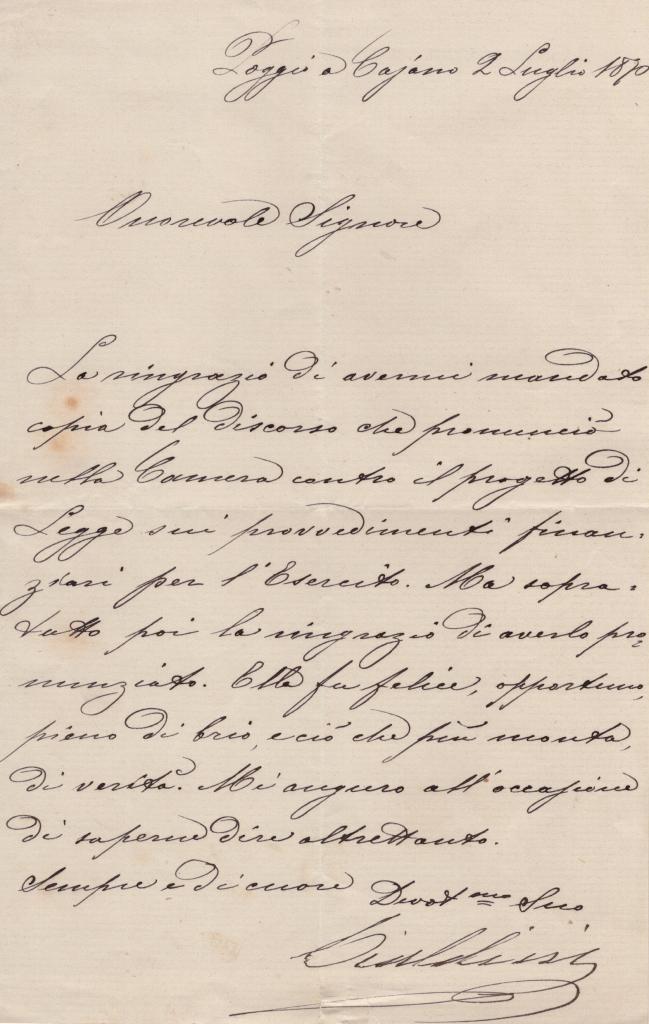 Poggio a Cajano 2 Luglio 1870
Onorevole Signore
La ringrazio di avermi mandato
copia del discorso che pronunciò
nella Camera contro il progetto di
Legge sui provvedimenti finan-
ziari per l'Esercito. Ma sopra-
tutto poi la ringrazio di averlo pro=
nunziato. Ella fu felice, opportuno,
pieno di brio, e ciò che più monta,
di verità. Mi auguro all'occasione
di saperne dire altrettanto.
Sempre e di cuore Devotmo Suo
Cialdini